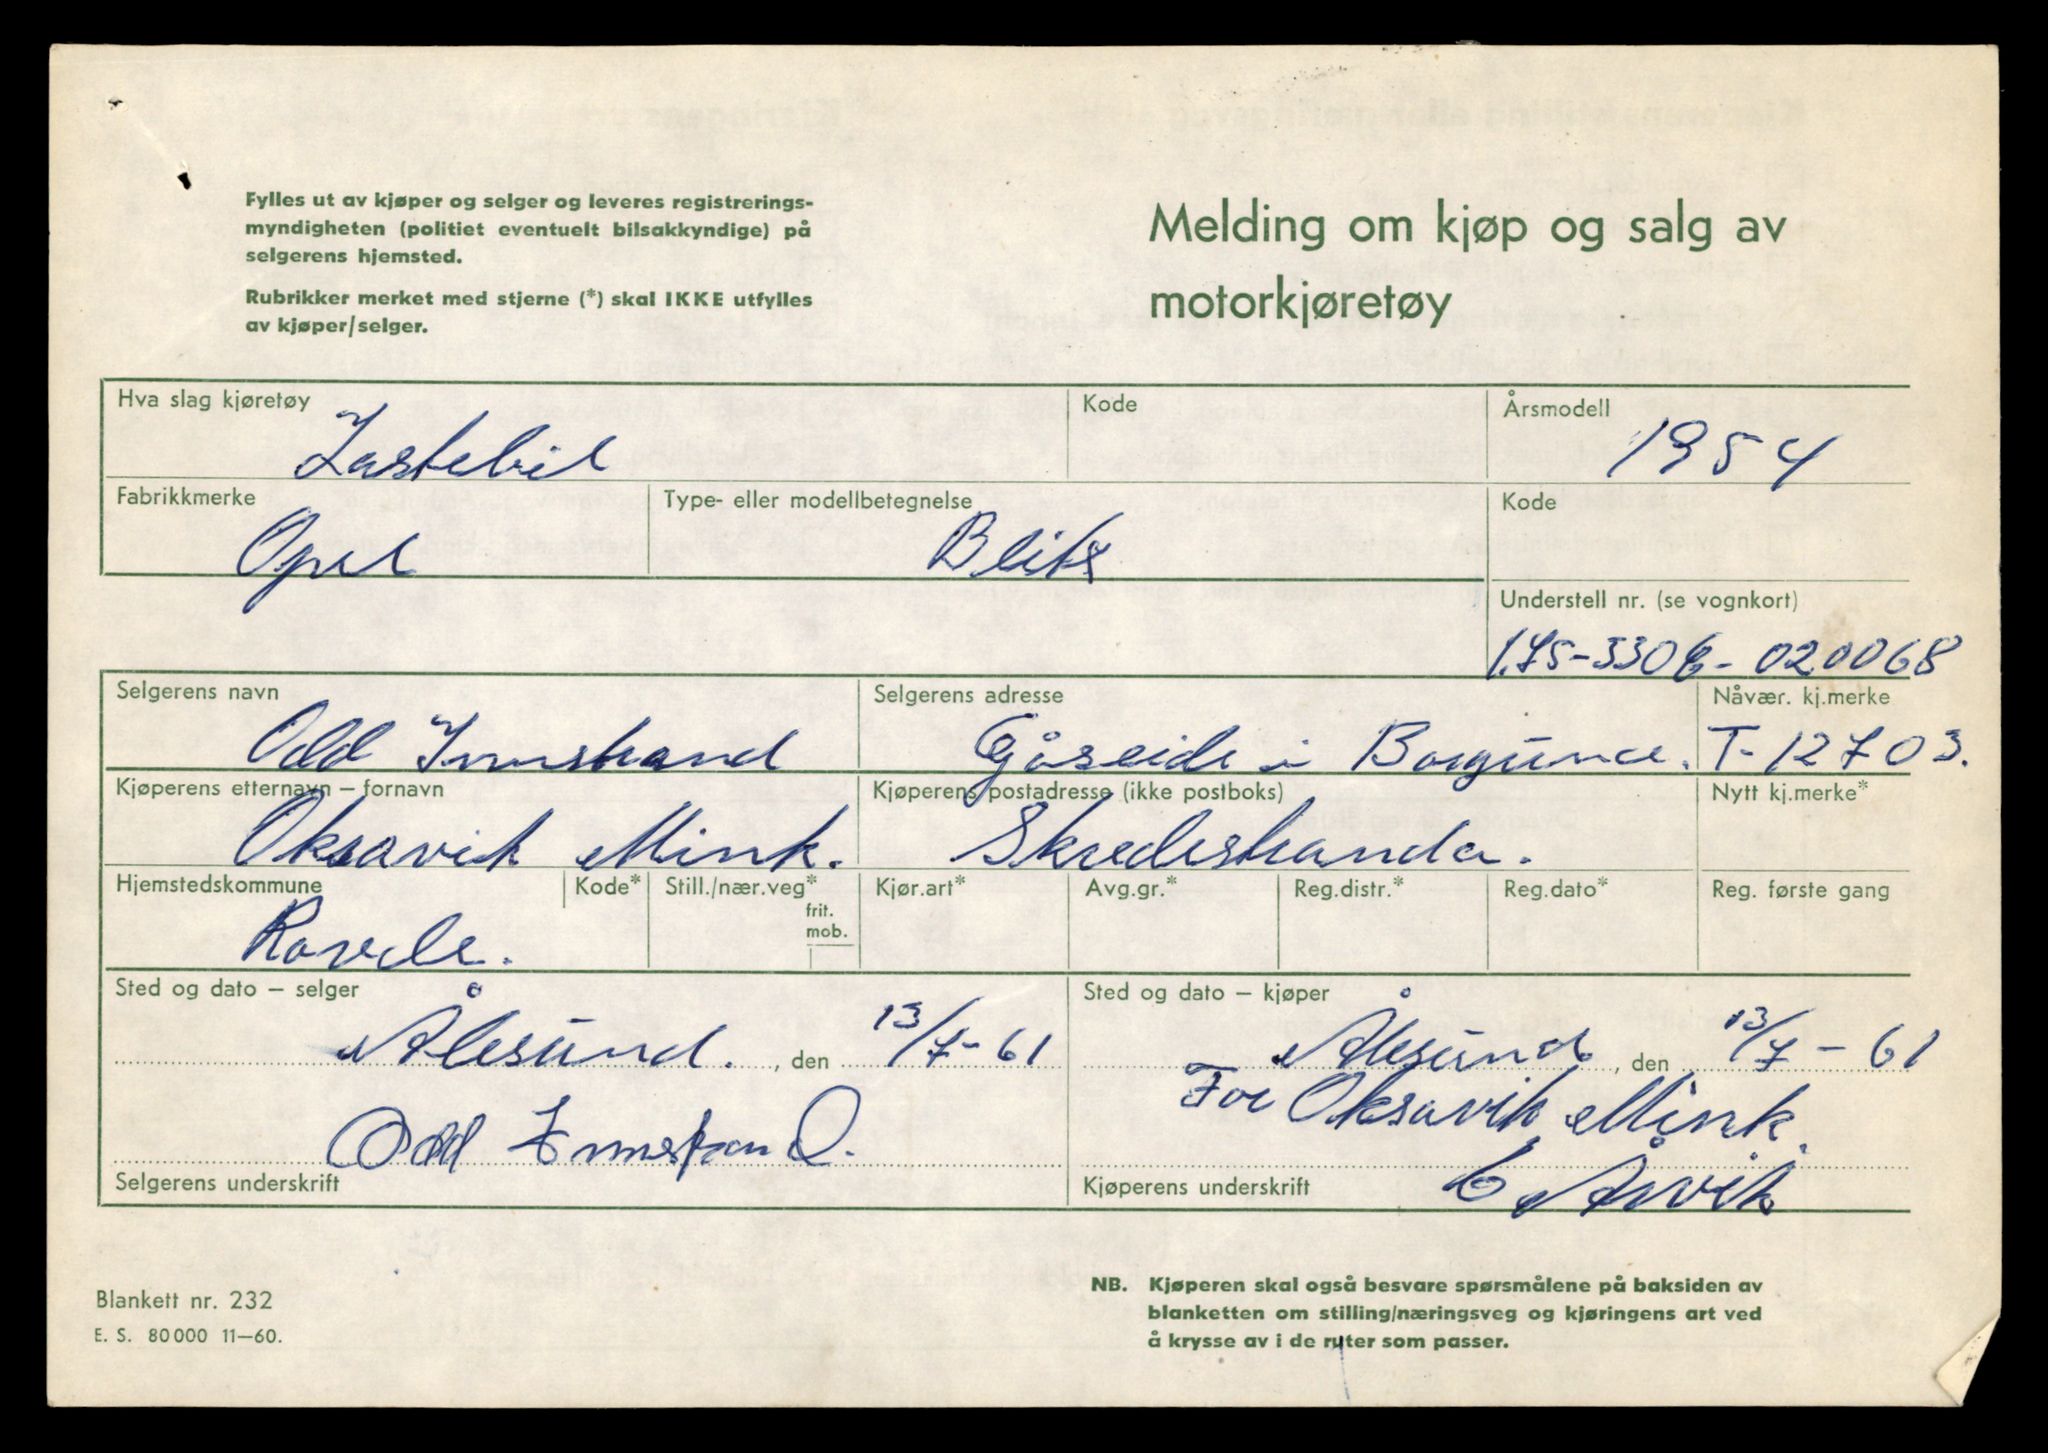 Fylles ut av kjøper og selger og leveres registrerings-
myndigheten (politiet eventuelt bilsakkyndige) på
selgerens hjemsted.
Rubrikker merket med stjerne (*) skal IKKE utfylles
av kjøper/selger.
Melding om kjøp og salg av
motorkjøretøy
Hva slag kjøretøy
Lastebil
Kode
Årsmodell
1954
Fabrikkmerke
Opel
Type- eller modellbetegnelse
Blitz
Kode
Understell nr. (se vognkort)
1.75-330 - 020068
Selgerens navn
Odd
Selgerens adresse
Gåseide i Borgund.
Nåvær. kj.merke
T-12703.
Kjøperens etternavn – fornavn
Oksavik Mink.
Kjøperens postadresse (ikke postboks)
Skredestranda.
Nytt kj.merke*
Hjemstedskommune
Rovde.
Kode*
Still./nær.veg*
frit.
mob.
Kjør.art*
Avg.gr.*
Reg.distr.*
Reg.dato*
Reg. første gang
Sted og dato – selger
Ålesund. , den 13/7-61
Odd
Selgerens underskrift
Sted og dato – kjøper
Ålesund , den 13/7-61
For Oksavik Mink.
Kjøperens underskrift
Blankett nr. 232
E. S. 80000 11–60.
NB. Kjøperen skal også besvare spørsmålene på baksiden av
blanketten om stilling/næringsveg og kjøringens art ved
å krysse av i de ruter som passer.